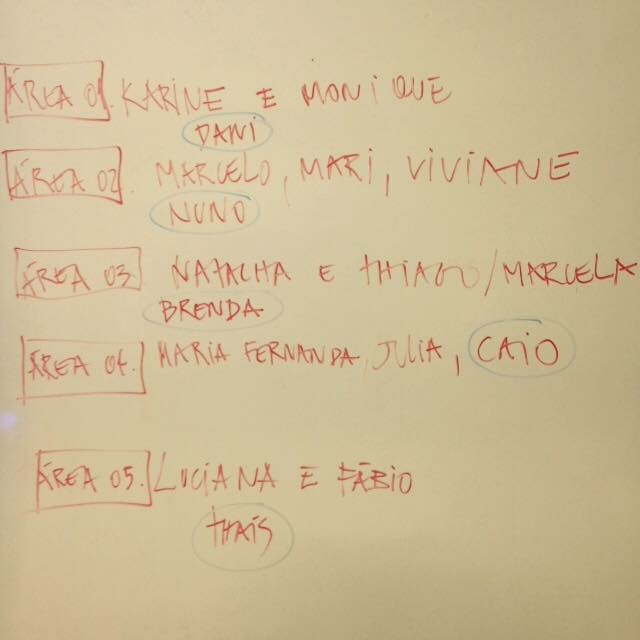 ÁREA 01. KARINE E MONIQUE
DANI
ÁREA 02 MARCELO, MARI, VIVIANE
NUNO
ÁREA 03 NATACHA E THIAGO/MARCELA
BRENDA
ÁREA 04. MARIA FERNANDA, JULIA, CAIO
ÁREA 05. LUCIANA E FÁBIO
THAÍS